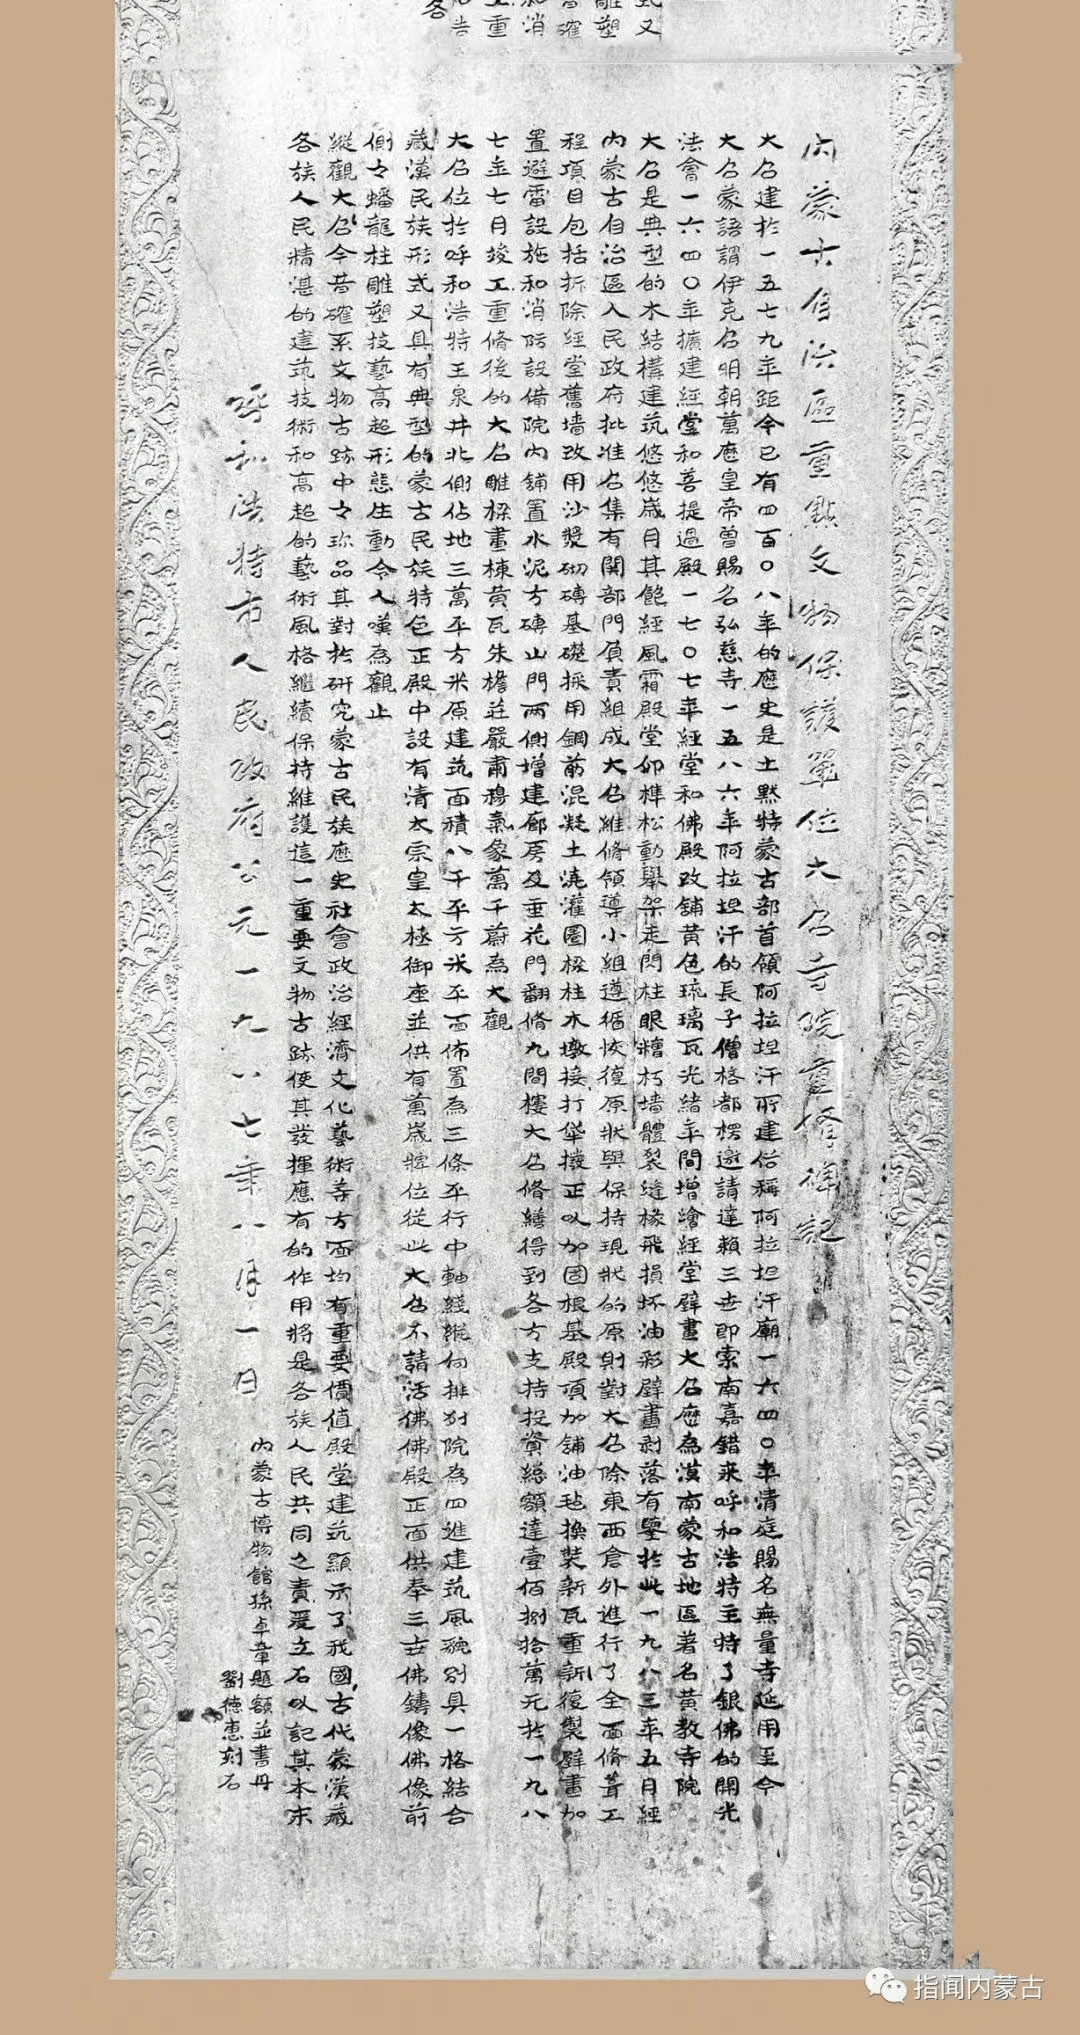 內蒙古自治區重點文物保護單位大召寺院重修碑記
大召建於一五七九年距今已有四百〇八年的歷史是土默特蒙古部首領阿拉坦汗所建俗稱阿拉坦汗廟一六四〇年清庭賜名無量寺延用至今
大召蒙語謂伊克召明朝萬歷皇帝曾賜名弘慈寺一五八六年阿拉坦汗的長子僧格都楞邀請達賴三世即索南嘉錯来呼和浩特主持了銀佛的開光
法會一六四〇年擴建經堂和菩提過殿一七〇七年經堂和佛殿改鋪黃色琉璃瓦光緒年間增繪經堂壁畫大召歷為漠南蒙古地區著名黃教寺院
大召是典型的木結構建筑悠悠歲月其飽經風霜殿堂卯榫松動舉架走閃柱眼糟朽墙體裂縫椽飛損坏油彩壁畫剥落有鑒於此一九八三年五月經
內蒙古自治區人民政府批准召集有関部門負責組成大召維脩領導小組遵循恢復原狀與保持現狀的原則對大召除東西倉外進行了全面脩葺工
程項目包括拆除經堂舊墻改用沙漿砌磚基礎採用鋼筋混凝土澆灌圈樑柱木墩接打牮撥正以加固根基殿頂加鋪油毡換裝新瓦重新復製壁畫加
置避雷設施和消防設備院內鋪置水泥方磚山門两側增建廊房及垂花門翻脩九間樓大召脩繕得到各方支持投資總額達壹佰捌拾萬元於一九八
七年七月竣工重脩後的大召雕樑畫棟黃瓦朱檐莊嚴肅穆氣象萬千蔚為大觀
大召位於呼和浩特玉泉井北側佔地三萬平方米原建筑面積八千平方米平面佈置為三條平行中軸綫縱向排列院為四進建筑風貌別具一格結合
藏漢民族形式又具有典型的蒙古民族特色正殿中設有清太宗皇太極御座並供有萬歲牌位從此大召不請活佛佛殿正面供奉三世佛鑄像佛像前
側之蟠龍柱雕塑技藝高超形態生動令人嘆為觀止
縱觀大召今昔確系文物古跡中之珍品其對於研究蒙古民族歷史社會政治經濟文化藝術等方面均有重要價值殿堂建筑顯示了我國古代蒙漢藏
各族人民精湛的建筑技術和高超的藝術風格繼續保持維護這一重要文物古跡使其發揮應有的作用將是各族人民共同之責爰立石以記其本末
呼和浩特市人民政府公元一九八七年八月一日
內蒙古博物館孫卓章題額並書丹
劉德惠刻石
指闻内蒙古